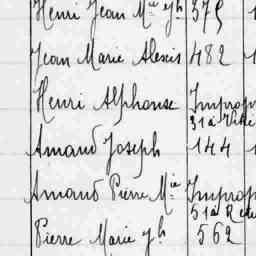 Henri Jean Mie Jh 375
Jean Marie Alexis 482
Henri Alphonse Improp
31 à
Amand Joseph 144
Amand Pierre Mie Improp
51 à
Pierre Marie Jh 562